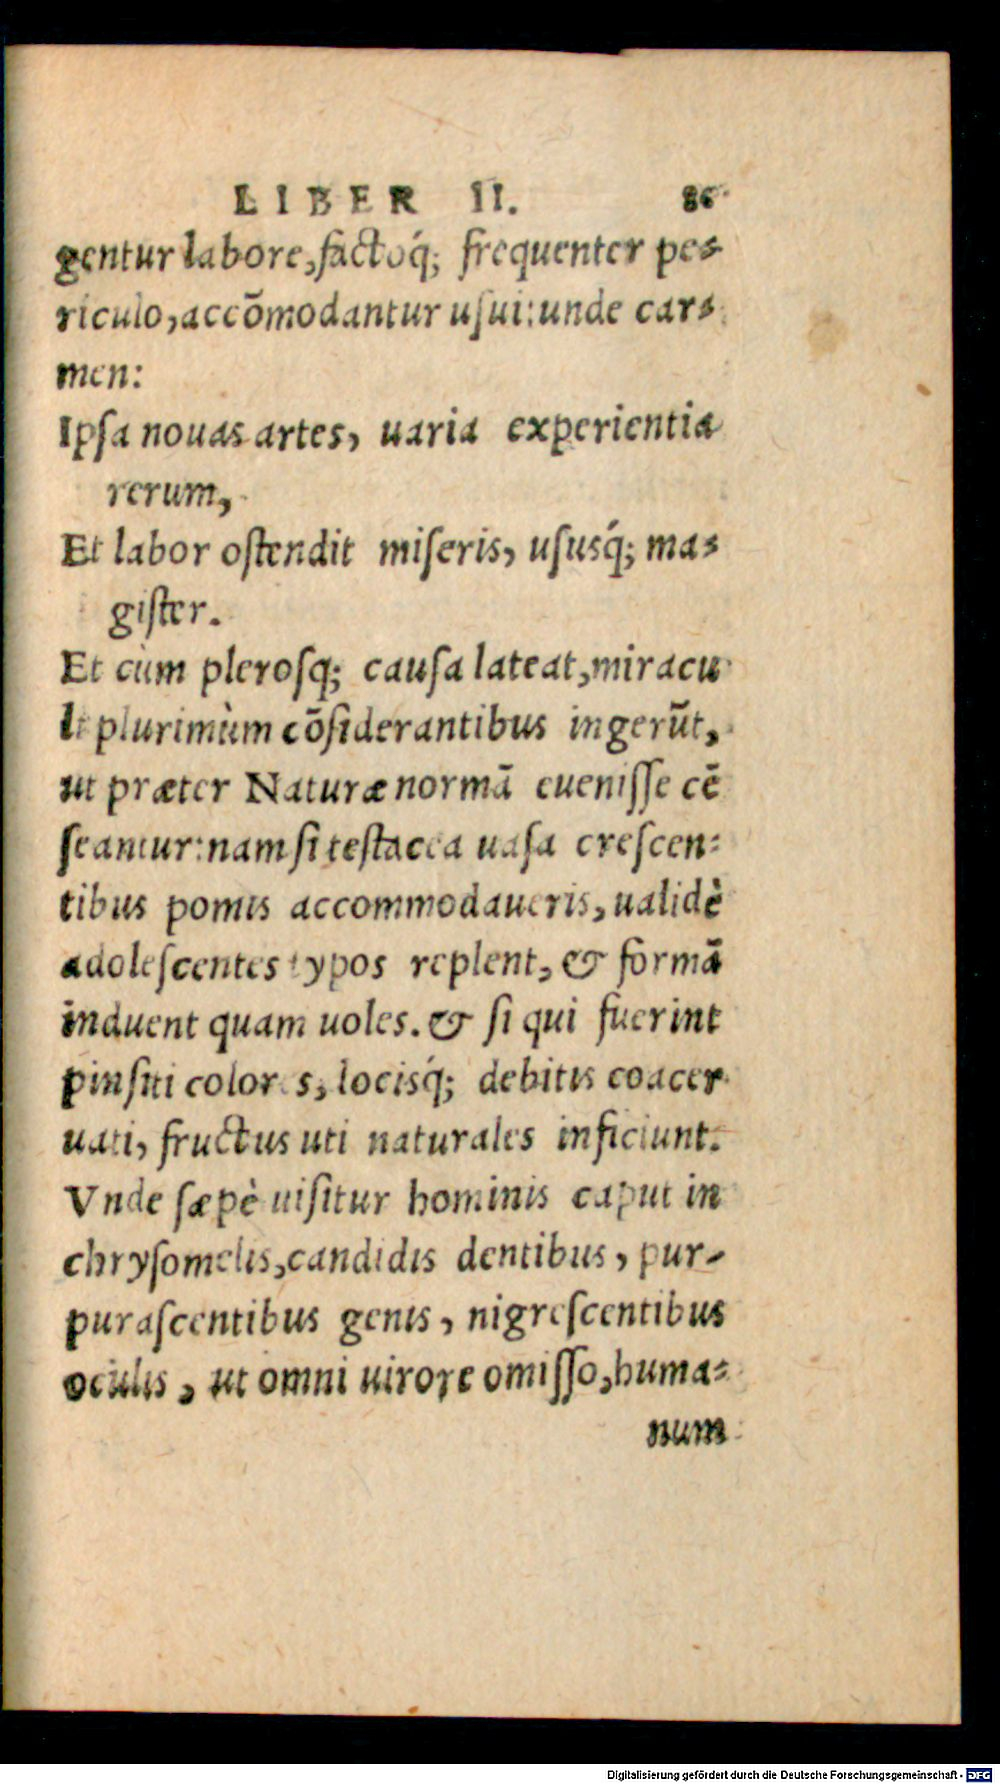 LIBER II. 86
gentur labore, factoq́; frequenter pe-
riculo, accõmodantur usui: unde car-
men:
Ipsa nouas artes, uaria experientia
rerum,
Et labor ostendit miseris, ususq́; ma-
gister.
Et cùm plerosq; causa lateat, miracu
li plurimùm cõsiderantibus ingerũt,
ut præter Naturæ normã euenisse cẽ
seantur: nam si testacea uasa crescen-
tibus pomis accommodaueris, ualidè
adolescentes typos replent, & formã
induent quam uoles. & si qui fuerint
pinsiti colores, locisq́; debitis coacer
uati, fructus uti naturales inficiunt.
Vnde sæpè uisitur hominis caput in
chrysomelis, candidis dentibus, pur-
purascentibus genis, nigrescentibus
oculis, ut omni uirore omisso, huma-
num
Digitalisierung gefördert durch die Deutsche Forschungsgemeinschaft - DFG